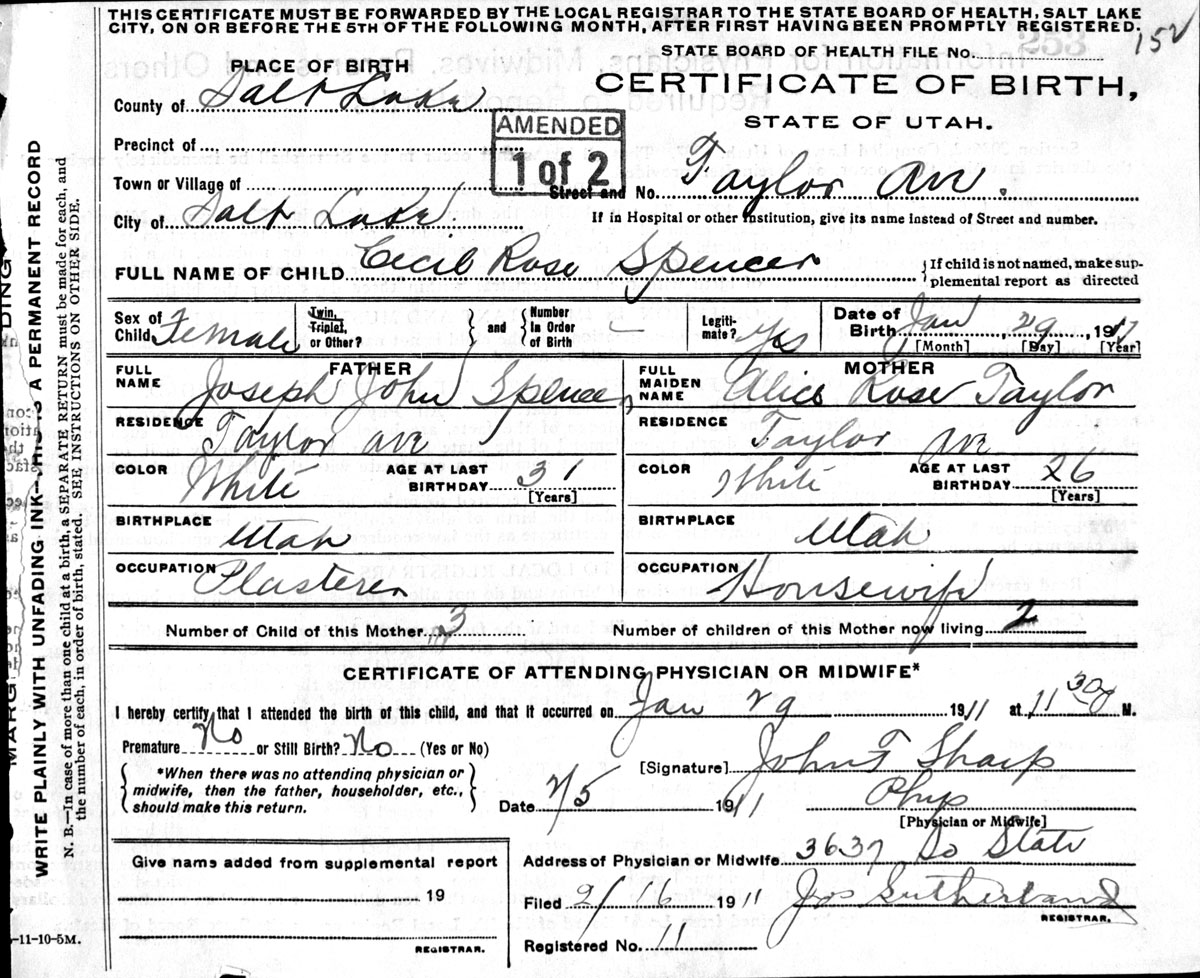 THIS CERTIFICATE MUST BE FORWARDED BY THE LOCAL REGISTRAR TO THE STATE BOARD OF HEALTH, SALT LAKE
CITY, ON OR BEFORE THE 5TH OF THE FOLLOWING MONTH, AFTER FIRST HAVING BEEN PROMPTLY REGISTERED.
152
STATE BOARD OF HEALTH FILE No. 253
PLACE OF BIRTH
CERTIFICATE OF BIRTH,
STATE OF UTAH.
County of Salt Lake
AMENDED
1 of 2
Precinct of
Town or Village of
Street and No. Taylor Ave.
City of Salt Lake
If in Hospital or other Institution, give its name instead of Street and number.
FULL NAME OF CHILD Cecil Rose Spencer
{If child is not named, make sup-
plemental report as directed
Sex of Child Female
Twin, Triplet, or Other?
and
Number in Order of Birth —
Legiti-mate? Yes
Date of Birth Jan 29 191
[Month] [Day] [Year]
FATHER
MOTHER
FULL NAME Joseph John Spencer
FULL MAIDEN NAME Alice Rose Taylor
RESIDENCE Taylor Ave
RESIDENCE Taylor Ave
COLOR White AGE AT LAST BIRTHDAY 31 [Years]
COLOR White AGE AT LAST BIRTHDAY 26 [Years]
BIRTHPLACE Utah
BIRTHPLACE Utah
OCCUPATION Plasterer
OCCUPATION Housewife
Number of Child of this Mother 3
Number of children of this Mother now living 2
CERTIFICATE OF ATTENDING PHYSICIAN OR MIDWIFE*
I hereby certify that I attended the birth of this child, and that it occurred on Jan 29 1911 at 11 30 M.
Premature No or Still Birth? No (Yes or No)
{*When there was no attending physician or
midwife, then the father, householder, etc.,
should make this return.}
[Signature] John F Sharp
Date 2/5 1911 Phys
[Physician or Midwife]
Give name added from supplemental report
19
REGISTRAR.
Address of Physician or Midwife 3637 So State
Filed 2/16 1911 Jos Sutherland
REGISTRAR.
Registered No. 11
-11-10-5M.
WRITE PLAINLY WITH UNFADING INK—THIS A PERMANENT RECORD
N. B.—In case of more than one child at a birth, a SEPARATE RETURN must be made for each, and
the number of each, in order of birth, stated. SEE INSTRUCTIONS ON OTHER SIDE.